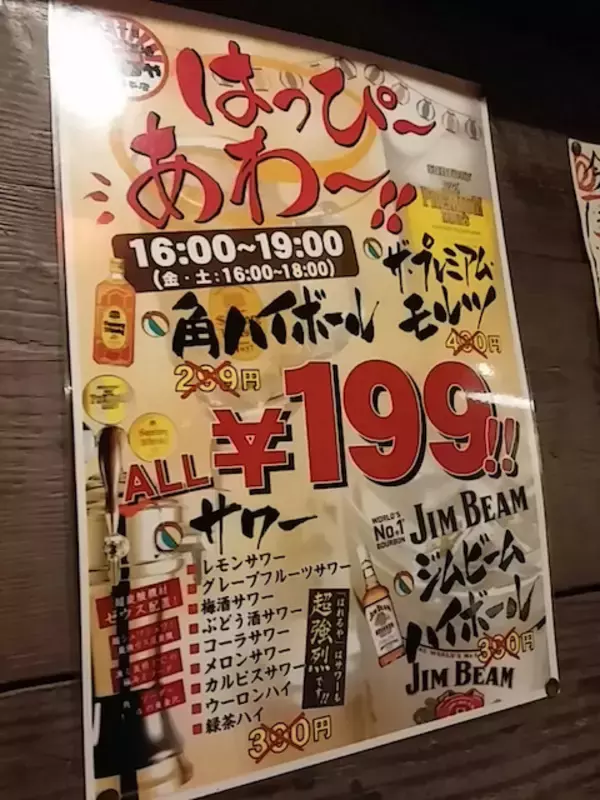 はっぴ〜
あわ〜!!
16:00~19:00
(金・土:16:00~18:00)
角ハイボール
239円
ザ・プレミアム・
モルツ
430円
ALL ¥199!!
サワー
レモンサワー
グレープフルーツサワー
梅酒サワー
ぶどう酒サワー
コーラサワー
メロンサワー
カルピスサワー
ウーロンハイ
緑茶ハイ
330円
「はれるや」はサワーも
超強烈です!!
WORLD'S
No.1
BOURBON
JIM BEAM
ジムビーム
ハイボール
330円
JIM BEAM